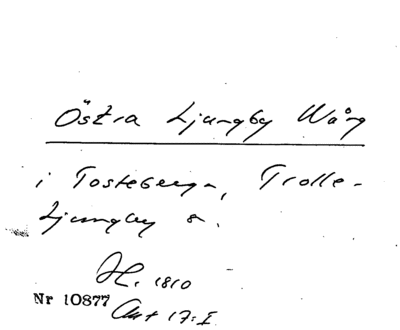 Östra Ljungby Wång
i Tosteberga, Trolle-
Ljungby s.
H. 1810
Nr 10877
Aut 17:I